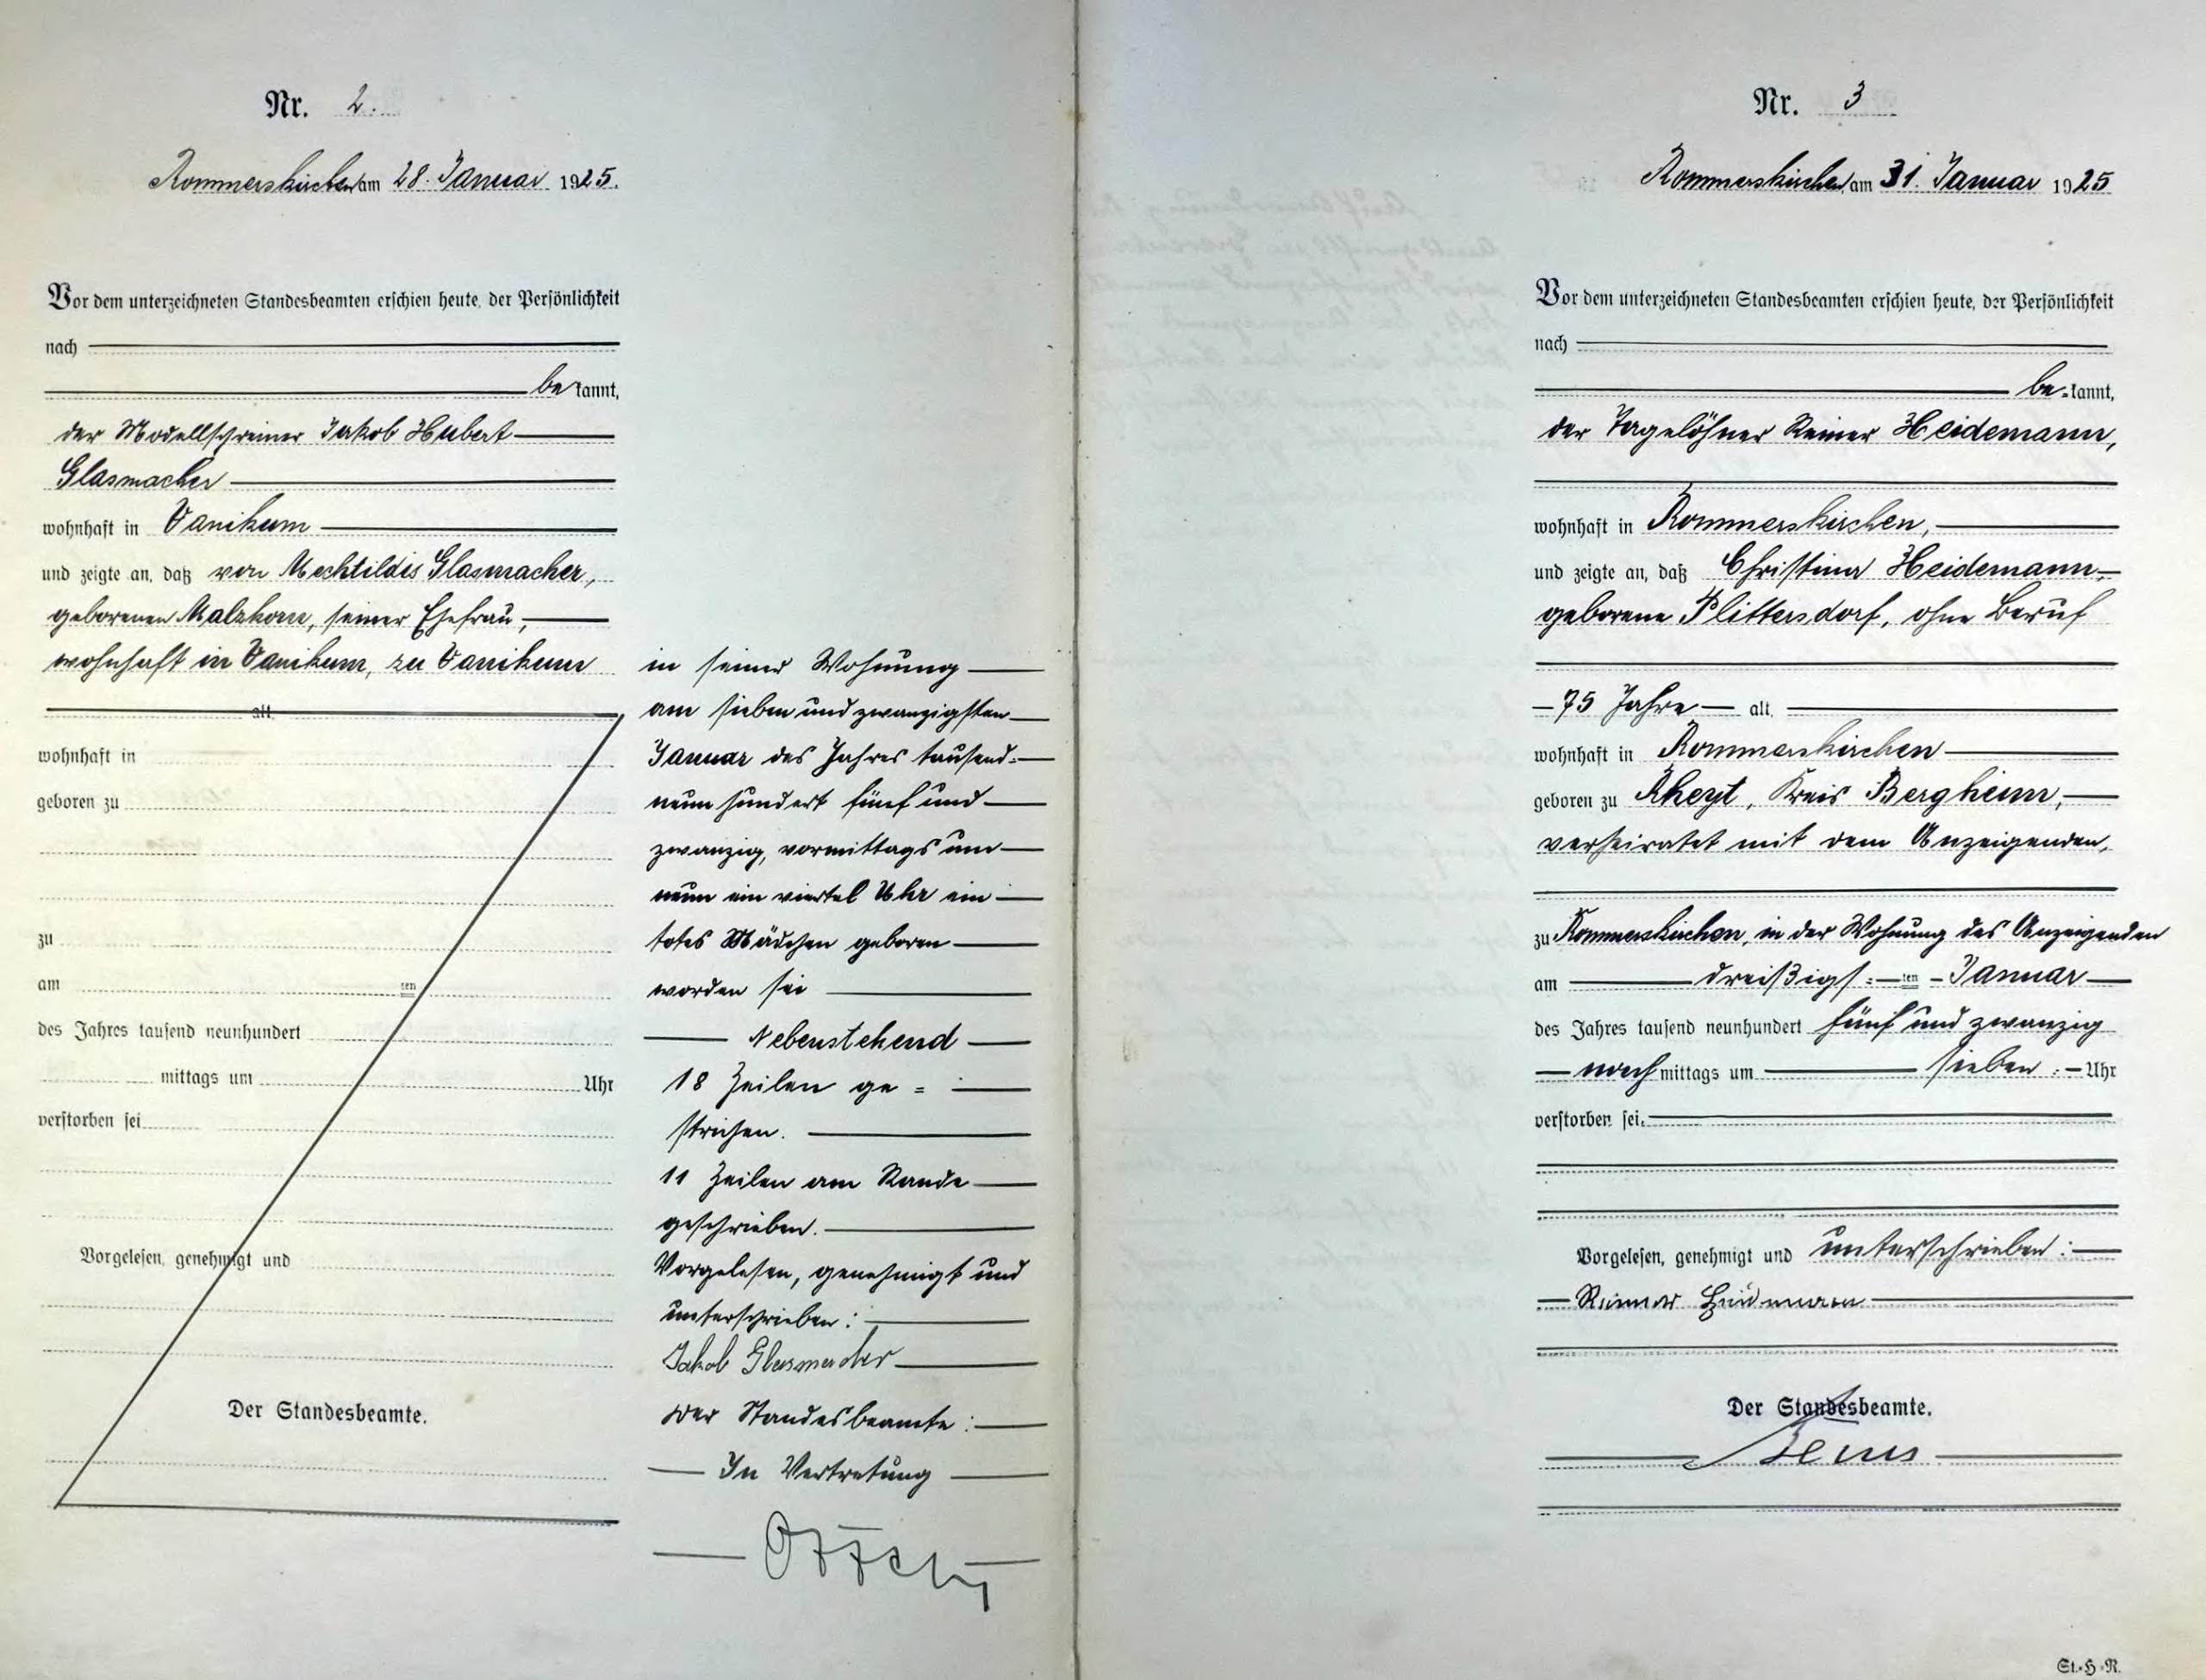 Nr. 2.
Rommerskirchen am 28. Januar 1925.
Vor dem unterzeichneten Standesbeamten erschien heute, der Persönlichkeit
nach
be kannt,
der Modellschreiner Jakob Hubert
Glasmacher
wohnhaft in Vanikum
und zeigte an, daß von Mechtildis Glasmacher,
geborenen Malzkorn, seiner Ehefrau,
wohnhaft in Vanikum, zu Vanikum
alt,
wohnhaft in
geboren zu
zu
am ten
des Jahres tausend neunhundert
mittags um Uhr
verstorben sei
Vorgelesen, genehmigt und
Der Standesbeamte.
in seiner Wohnung
am sieben und zwanzigsten
Januar des Jahres tausend
neun hundert fünf und
zwanzig, vormittags um
neun ein viertel Uhr ein
totes Mädchen geboren
worden sei
Nebenstehend
18 Zeilen ge =
strichen.
11 Zeilen am Rande
geschrieben.
Vorgelesen, genehmigt und
unterschrieben:
Jakob Glasmacher
Der Standesbeamte:
In Vertretung
Nr. 3
Rommerskirchen, am 31. Januar 1925
Vor dem unterzeichneten Standesbeamten erschien heute, der Persönlichkeit
nach
be=kannt,
der Tagelöhner Reiner Heidemann,
wohnhaft in Rommerskirchen,
und zeigte an, daß Christina Heidemann,
geborene Plittersdorf, ohne Beruf
75 Jahre alt,
wohnhaft in Rommerskirchen
geboren zu Rheyt, Kreis Bergheim,
verheiratet mit dem Anzeigenden,
zu Rommerskirchen, in der Wohnung des Anzeigenden
am dreißigs=ten Januar
des Jahres tausend neunhundert fünf und zwanzig
nach mittags um sieben Uhr
verstorben sei.
Vorgelesen, genehmigt und unterschrieben:
Reiner Heidemann
Der Standesbeamte.
St.=H.=R.